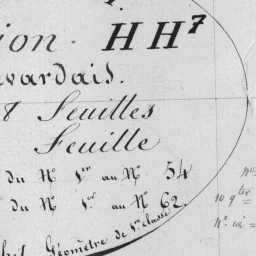 ion. HH⁷
vardais.
8 Feuilles
Feuille
du N° 1er au N° 54
du N° 1er au N° 62.
Géomètre de 1re classe